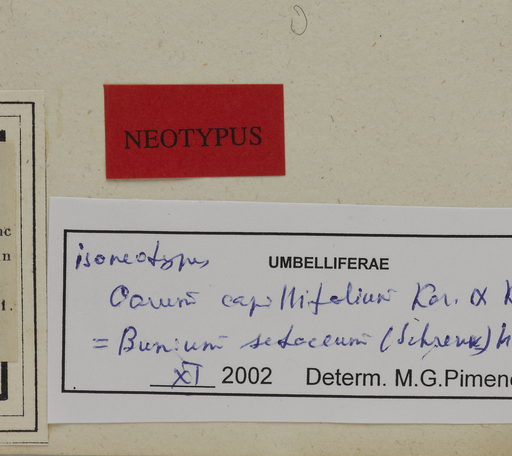 NEOTYPUS
nc
n
1.
isoneotypus
UMBELLIFERAE
Carum capillifolium Kar. & K
= Bunium setaceum (Schrenk) H
XI 2002 Determ. M.G.Pimeno